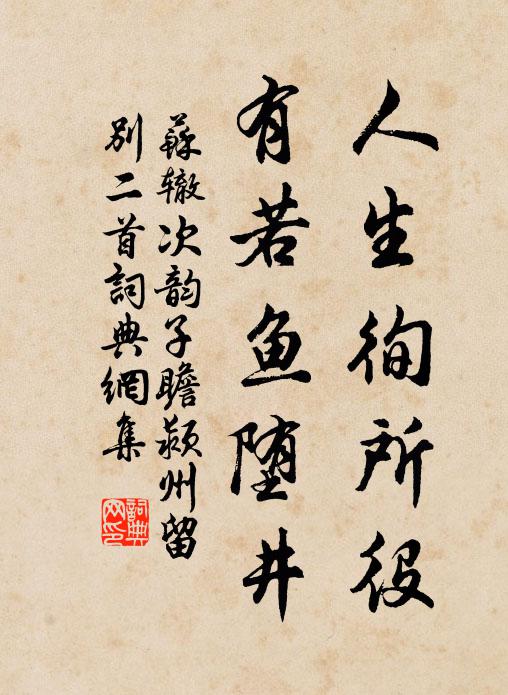 人生徇所役
有若鱼堕井
蘇辙次韵子瞻颍州留
别二首詞典網集
詞典网印